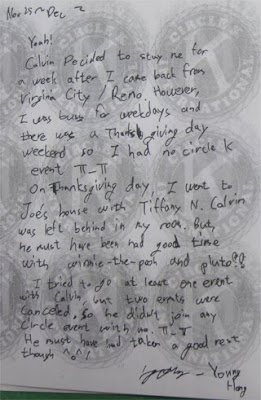 Nov 25 ~ Dec 2
Yeah!
Calvin Decided to stay me for
a week after I came back from
Virginia City / Reno. However,
I was busy for weekdays and
there was a Thanksgiving day
weekend so I had no circle k
event π_π
On Thanksgiving day, I went to
Joe's house with Tiffany N. Calvin
was left behind in my room. But,
he must have been had good time
with winnie-the-pooh and pluto??
I tried to go at least one event
with Calvin, but two events were
canceled. So he didn't join any
Circle event with me. π_π
He must have had taken a good rest
though ^o^/
- Young
Hong